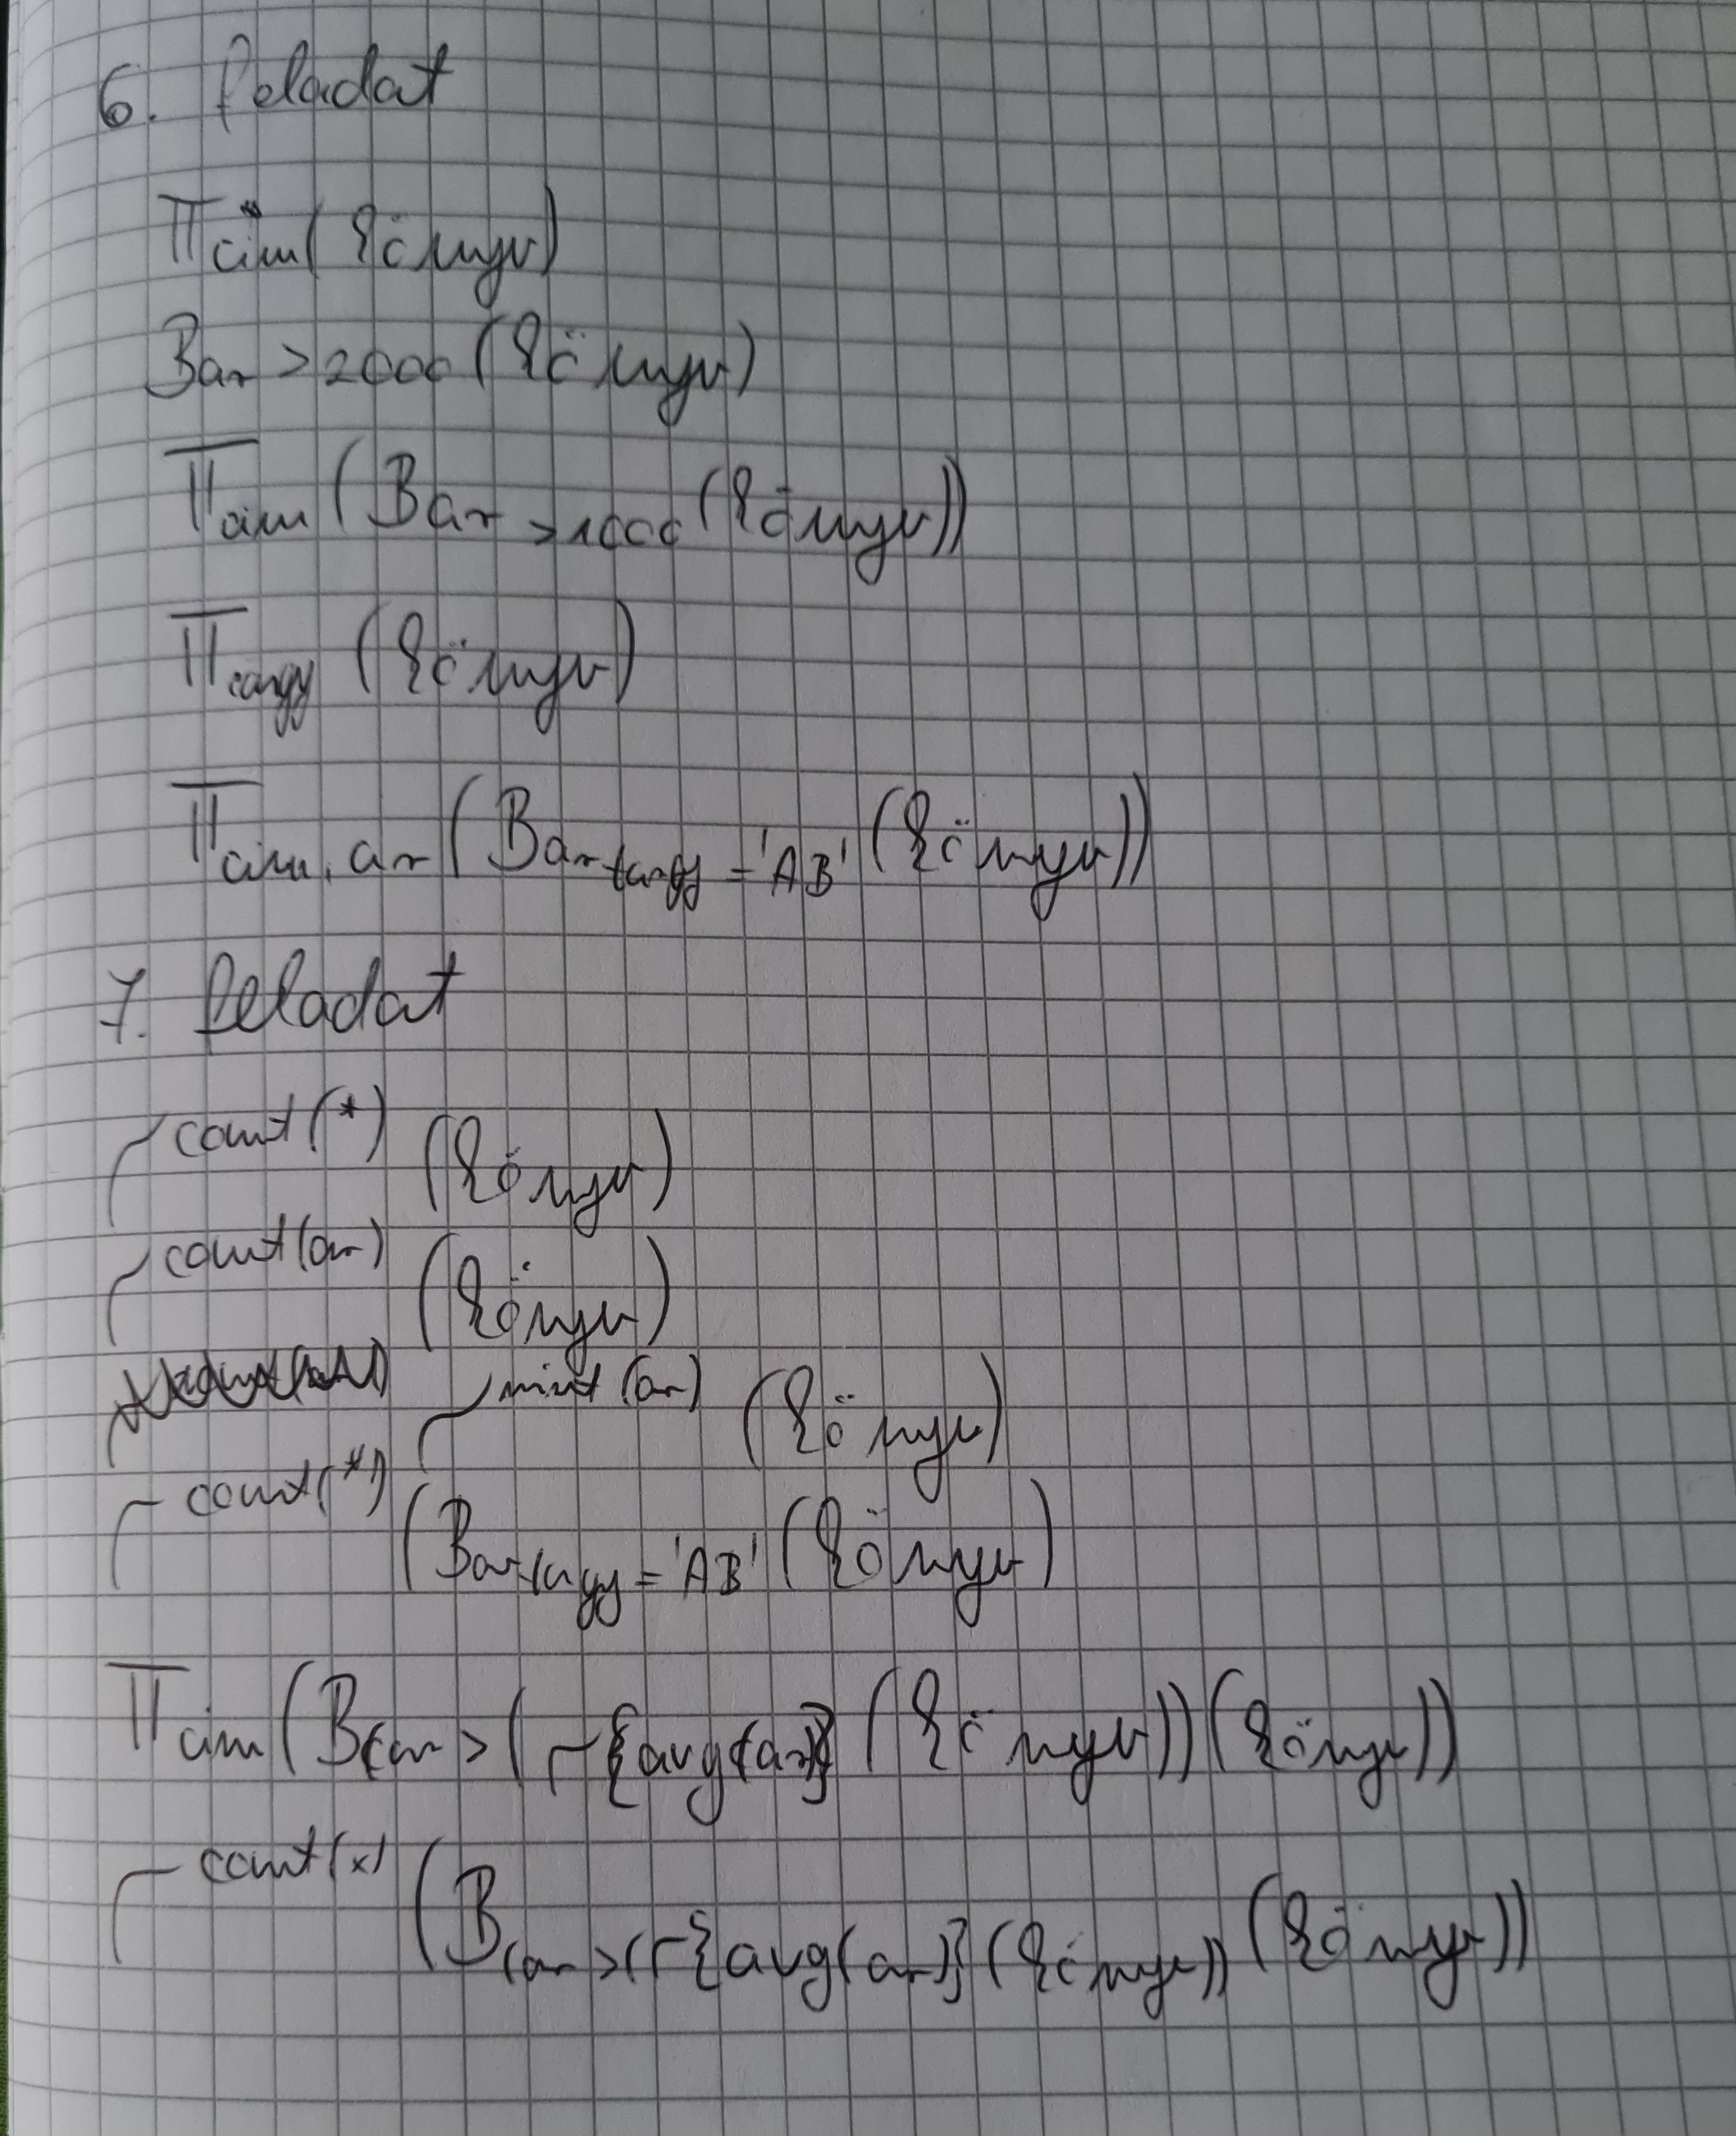 6. feladat
π cim (könyv)
Bar > 2000 (könyv)
π cim (Bar > 1000 (könyv))
π targy (könyv)
π cim, ar (Bar targy = 'AB' (könyv))
7. feladat
Γ count(*) (könyv)
Γ count(ar) (könyv)
Γ mint (ar) (könyv)
Γ count(*) (Bar targy = 'AB' (könyv)
π cim (B(ar > (Γ{avg(ar)} (könyv))(könyv))
Γ count(x) (B(ar > (Γ{avg(ar)} (könyv)) (könyv))